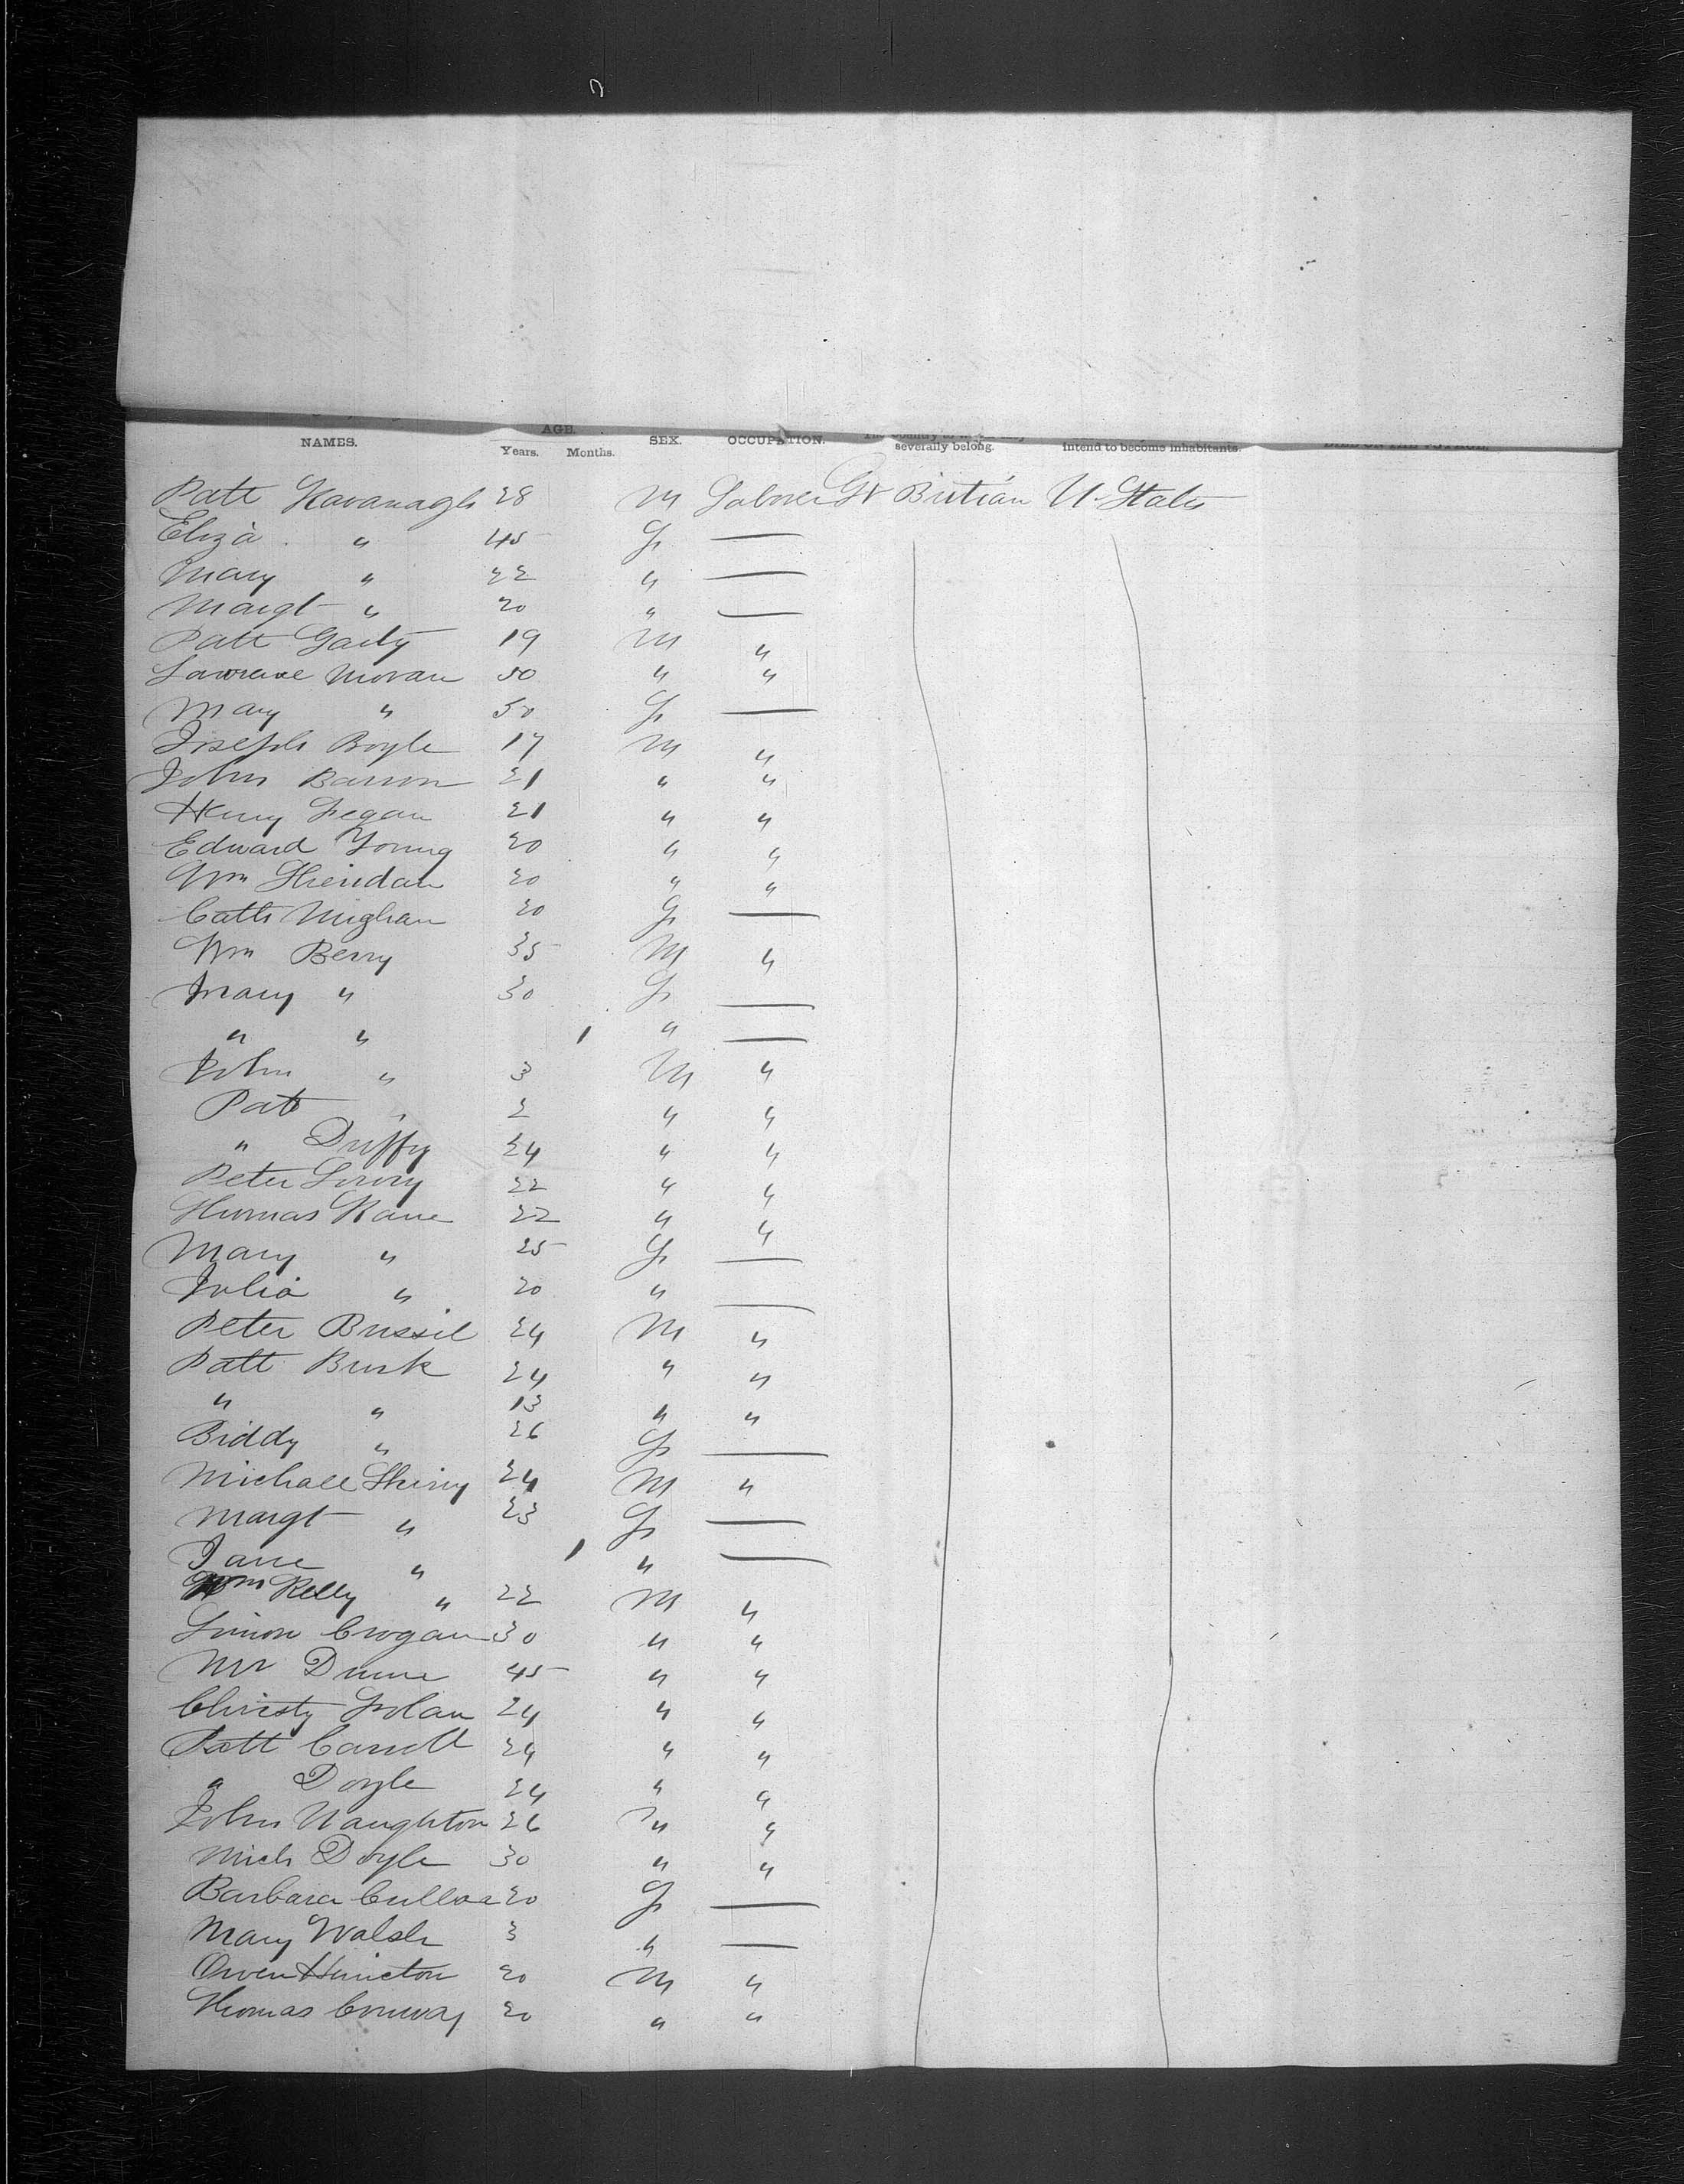 AGE.
NAMES. Years. Months. SEX. OCCUPATION. severally belong. intend to become inhabitants.
Patt Kavanagh 28 M Laborer Gt Britian U States
Eliza " 45 F —
Mary " 22 " —
Margt " 20 " —
Patt 19 M "
Lawrence Moran 50 " "
Mary " 50 F —
Joseph Boyle 17 M "
John Barron 21 " "
Henry Fegan 21 " "
Edward Young 20 " "
Wm Sheridan 20 " "
Cath 20 F —
Wm Berry 35 M "
Mary " 30 F —
" " 1 " —
John " 3 M "
Pat " 2 " "
" Duffy 24 " "
Peter 22 " "
Thomas Kane 22 " "
Mary " 25 F —
Julia " 20 " —
Peter 24 M "
Patt Burk 24 " "
" " 13 " "
Biddy " 26 F —
Michael 24 M "
Margt " 23 F —
Jane " 1 " —
Wm Kelly " 22 M "
Simon Crogan 30 " "
Mr Dunne 45 " "
Christy 24 " "
Patt Carroll 24 " "
" Doyle 24 " "
John Naughton 26 " "
Mich Doyle 30 " "
Barbara 20 F —
Mary Walsh 3 " —
Owen 20 M "
Thomas Conway 20 " "